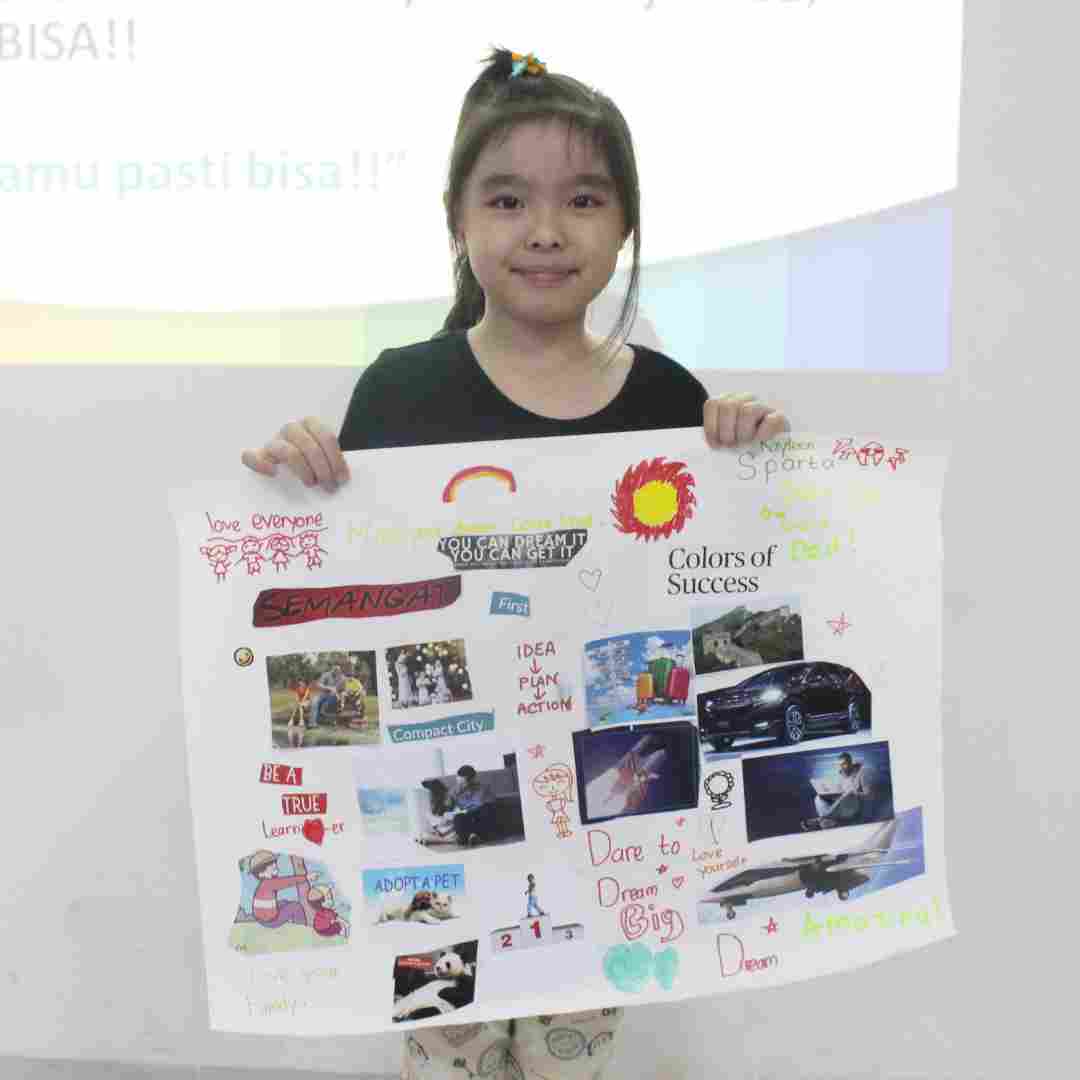 BISA!!
amu pasti bisa!!”
Kayleen
Sparta
love everyone
YOU CAN DREAM IT
YOU CAN GET IT
Colors of
Success
Dad!
SEMANGAT
First
IDEA
PLAN
ACTION
Compact City
BE A
TRUE
Learn er
Dare to
Dream
Big
Love
yourself
ADOPT A PET
2 1 3
Love your
Family.
Dream
Amazing!